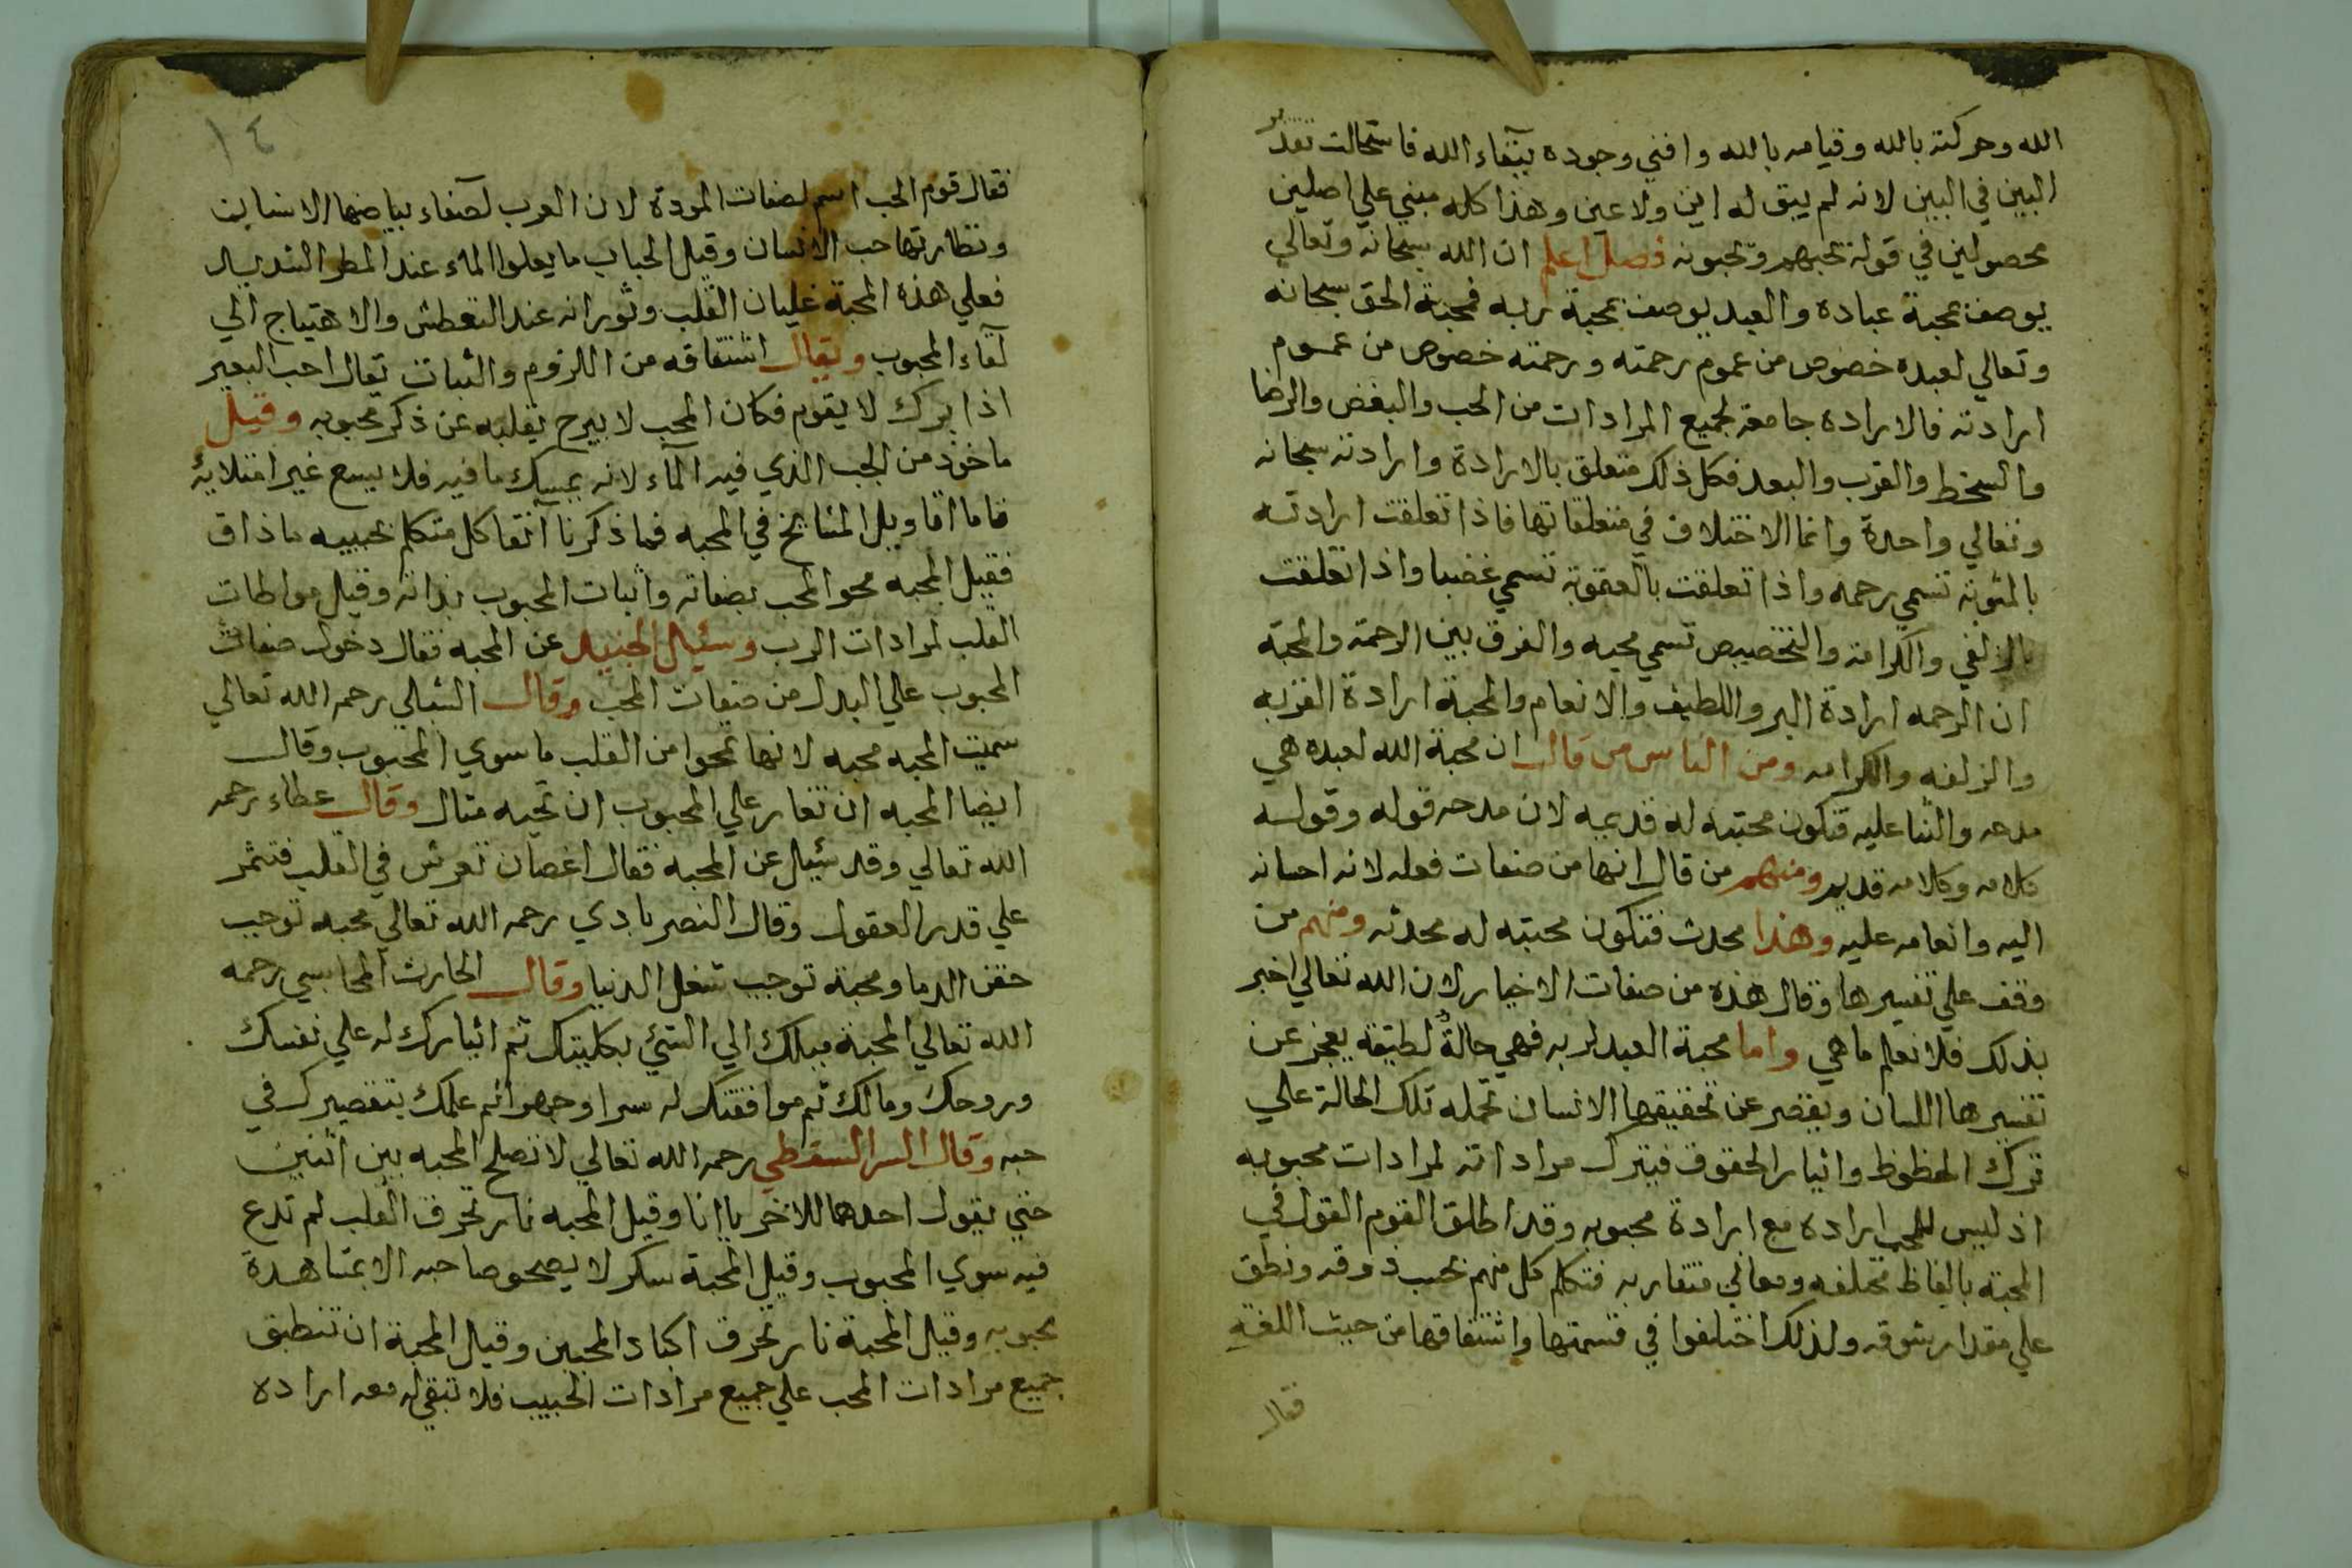 الله وحركته بالله وقيامه بالله وافني وجوده ببقاء الله فاستحالت تقدير
البين في البين لانه لم يبق له اين ولا عين وهذا كله مبني علي اصلين
محصولين في قوله يحبهم ويحبونه فصل اعلم ان الله سبحانه وتعالي
يوصف بمحبة عباده والعبد يوصف بمحبة ربه فمحبة الحق سبحانه
وتعالي لعبده خصوص من عموم رحمته ورحمته خصوص من عموم
ارادته فالارادة جامعة لجميع المرادات من الحب والبغض والرضا
والسخط والقرب والبعد فكل ذلك متعلق بالارادة وارادته سبحانه
وتعالي واحدة وانما الاختلاف في متعلقاتها فاذا تعلقت ارادته
بالمثوبة تسمي رحمه واذا تعلقت بالعقوبة تسمي غضبا واذا تعلقت
بالزلفي والكرامه والتخصيص تسمي محبه والفرق بين الرحمة والمحبة
ان الرحمه ارادة البر واللطيف والانعام والمحبة ارادة القربه
والزلفه والكرامه ومن الناس من قال ان محبة الله لعبده هي
مدحه والثنا عليه فتكون محبته له قديمه لان مدحه قوله وقوله
كلامه وكلامه قديم ومنهم من قال انها من صفات فعله لانه احسانه
اليه وانعامه عليه وهذا محدث فتكون محبته له محدثه ومنهم من
وقف علي تفسيرها وقال هذه من صفات الاخبار لان الله تعالي اخبر
بذلك فلا نعلم ما هي واما محبة العبد لربه فهي حالة لطيفه يعجز عن
تفسيرها اللسان ويقصر عن تحقيقها الانسان تحمله تلك الحالة علي
ترك الحظوظ وايثار الحقوق فيترك مراداته لمرادات محبوبه
اذ ليس للمحب ارادة مع ارادة محبوبه وقد اطلق القوم القول في
المحبة بالفاظ مختلفه ومعاني متقاربه فتكلم كل منهم بحسب ذوقه ونطق
علي مقدار شوقه ولذلك اختلفوا في قسمتها واشتقاقها من حيث اللغة
فقال
١٤
فقال قوم الحب اسم لصفات المودة لان العرب لصفاء بياضها الاسنان
ونظارتها حب الانسان وقيل الحباب ما يعلوا الماء عند المطر الشديد
فعلي هذه المحبة غليان القلب وثورانه عند التعطش والاهتياج الي
لقاء المحبوب ويقال اشتقاقه من اللزوم والثبات يقال احب البعير
اذا برك لا يقوم فكان المحب لا يبرح بقلبه عن ذكر محبوبه وقيل
ماخوذ من الحب الذي فيه الماء لانه يمسك ما فيه فلا يسع غير امتلايه
فاما اقاويل المشايخ في المحبه فما ذكرنا آنفا كل متكلم بحبيبه ما ذاق
فقيل المحبه محو المحب بصفاته واثبات المحبوب بذاته وقيل مواطات
القلب لمرادات الرب وسئيل الجنيد عن المحبه فقال دخول صفات
المحبوب علي البدل من صفات المحب وقال الشبلي رحمه الله تعالي
سميت المحبه محبه لانها تمحوا من القلب ما سوي المحبوب وقال
ايضا المحبه ان تغار علي المحبوب ان تحبه مثال وقال عطاء رحمه
الله تعالي وقد سئيل عن المحبه فقال اغصان تغرس في القلب فتثمر
علي قدر العقول وقال النصرابادي رحمه الله تعالي محبه توجب
حقن الدما ومحبة توجب شغل الدنيا وقال الحارث المحاسبي رحمه
الله تعالي المحبة ميلك الي الشيء بكليتك ثم ايثارك له علي نفسك
وروحك ومالك ثم موافقتك له سرا وجهرا ثم علمك بتقصيرك في
حبه وقال السر السقطي رحمه الله تعالي لا تصلح المحبه بين اثنين
حتي يقول احدهما للاخر يا انا وقيل المحبه نار تحرق القلب لم تدع
فيه سوي المحبوب وقيل المحبة سكر لا يصحو صاحبه الا بمشاهدة
محبوبه وقيل المحبة نار تحرق اكباد المحبين وقيل المحبة ان تنطبق
جميع مرادات المحب علي جميع مرادات الحبيب فلا تبقي له معه ارادة